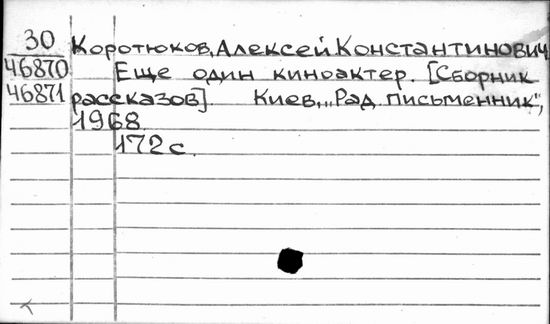 30
46870
46871
Коротюков, Алексей Константинович
Еще один киноактер. [Сборник
рассказов]. Киев, „Рад. письменник",
1968.
172 с.